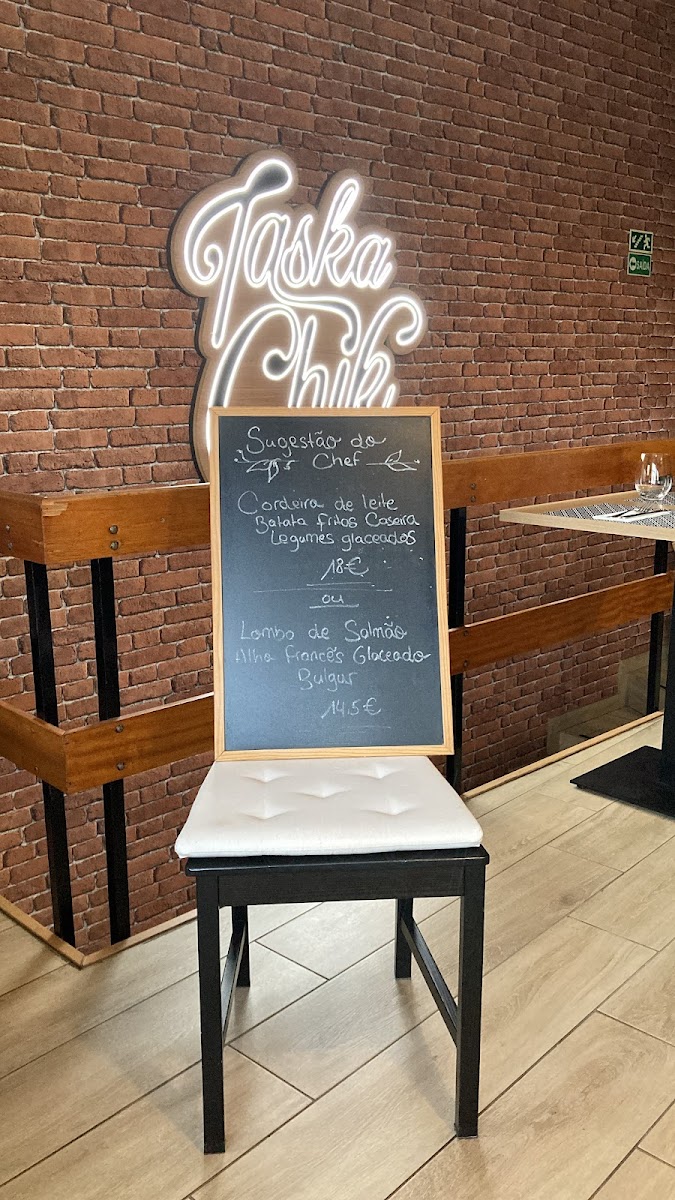 Taska
Chik
SAÍDA
Sugestão do
Chef
Cordeira de leite
Batata fritas Caseira
Legumes glaceados
18€
ou
Lombo de Salmão
Alho Francês Glaceado
Bulgur
14.5€